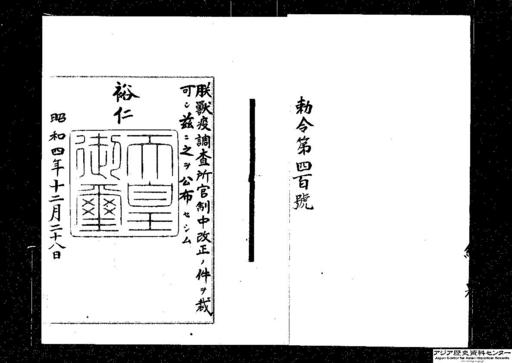 勅令第四百號
朕獸疫調査所官制中改正ノ件ヲ裁
可シ茲ニ之ヲ公布セシム
裕仁
天皇
御璽
昭和四年十二月二十八日
アジア歴史資料センター
Japan Center for Asian Historical Records